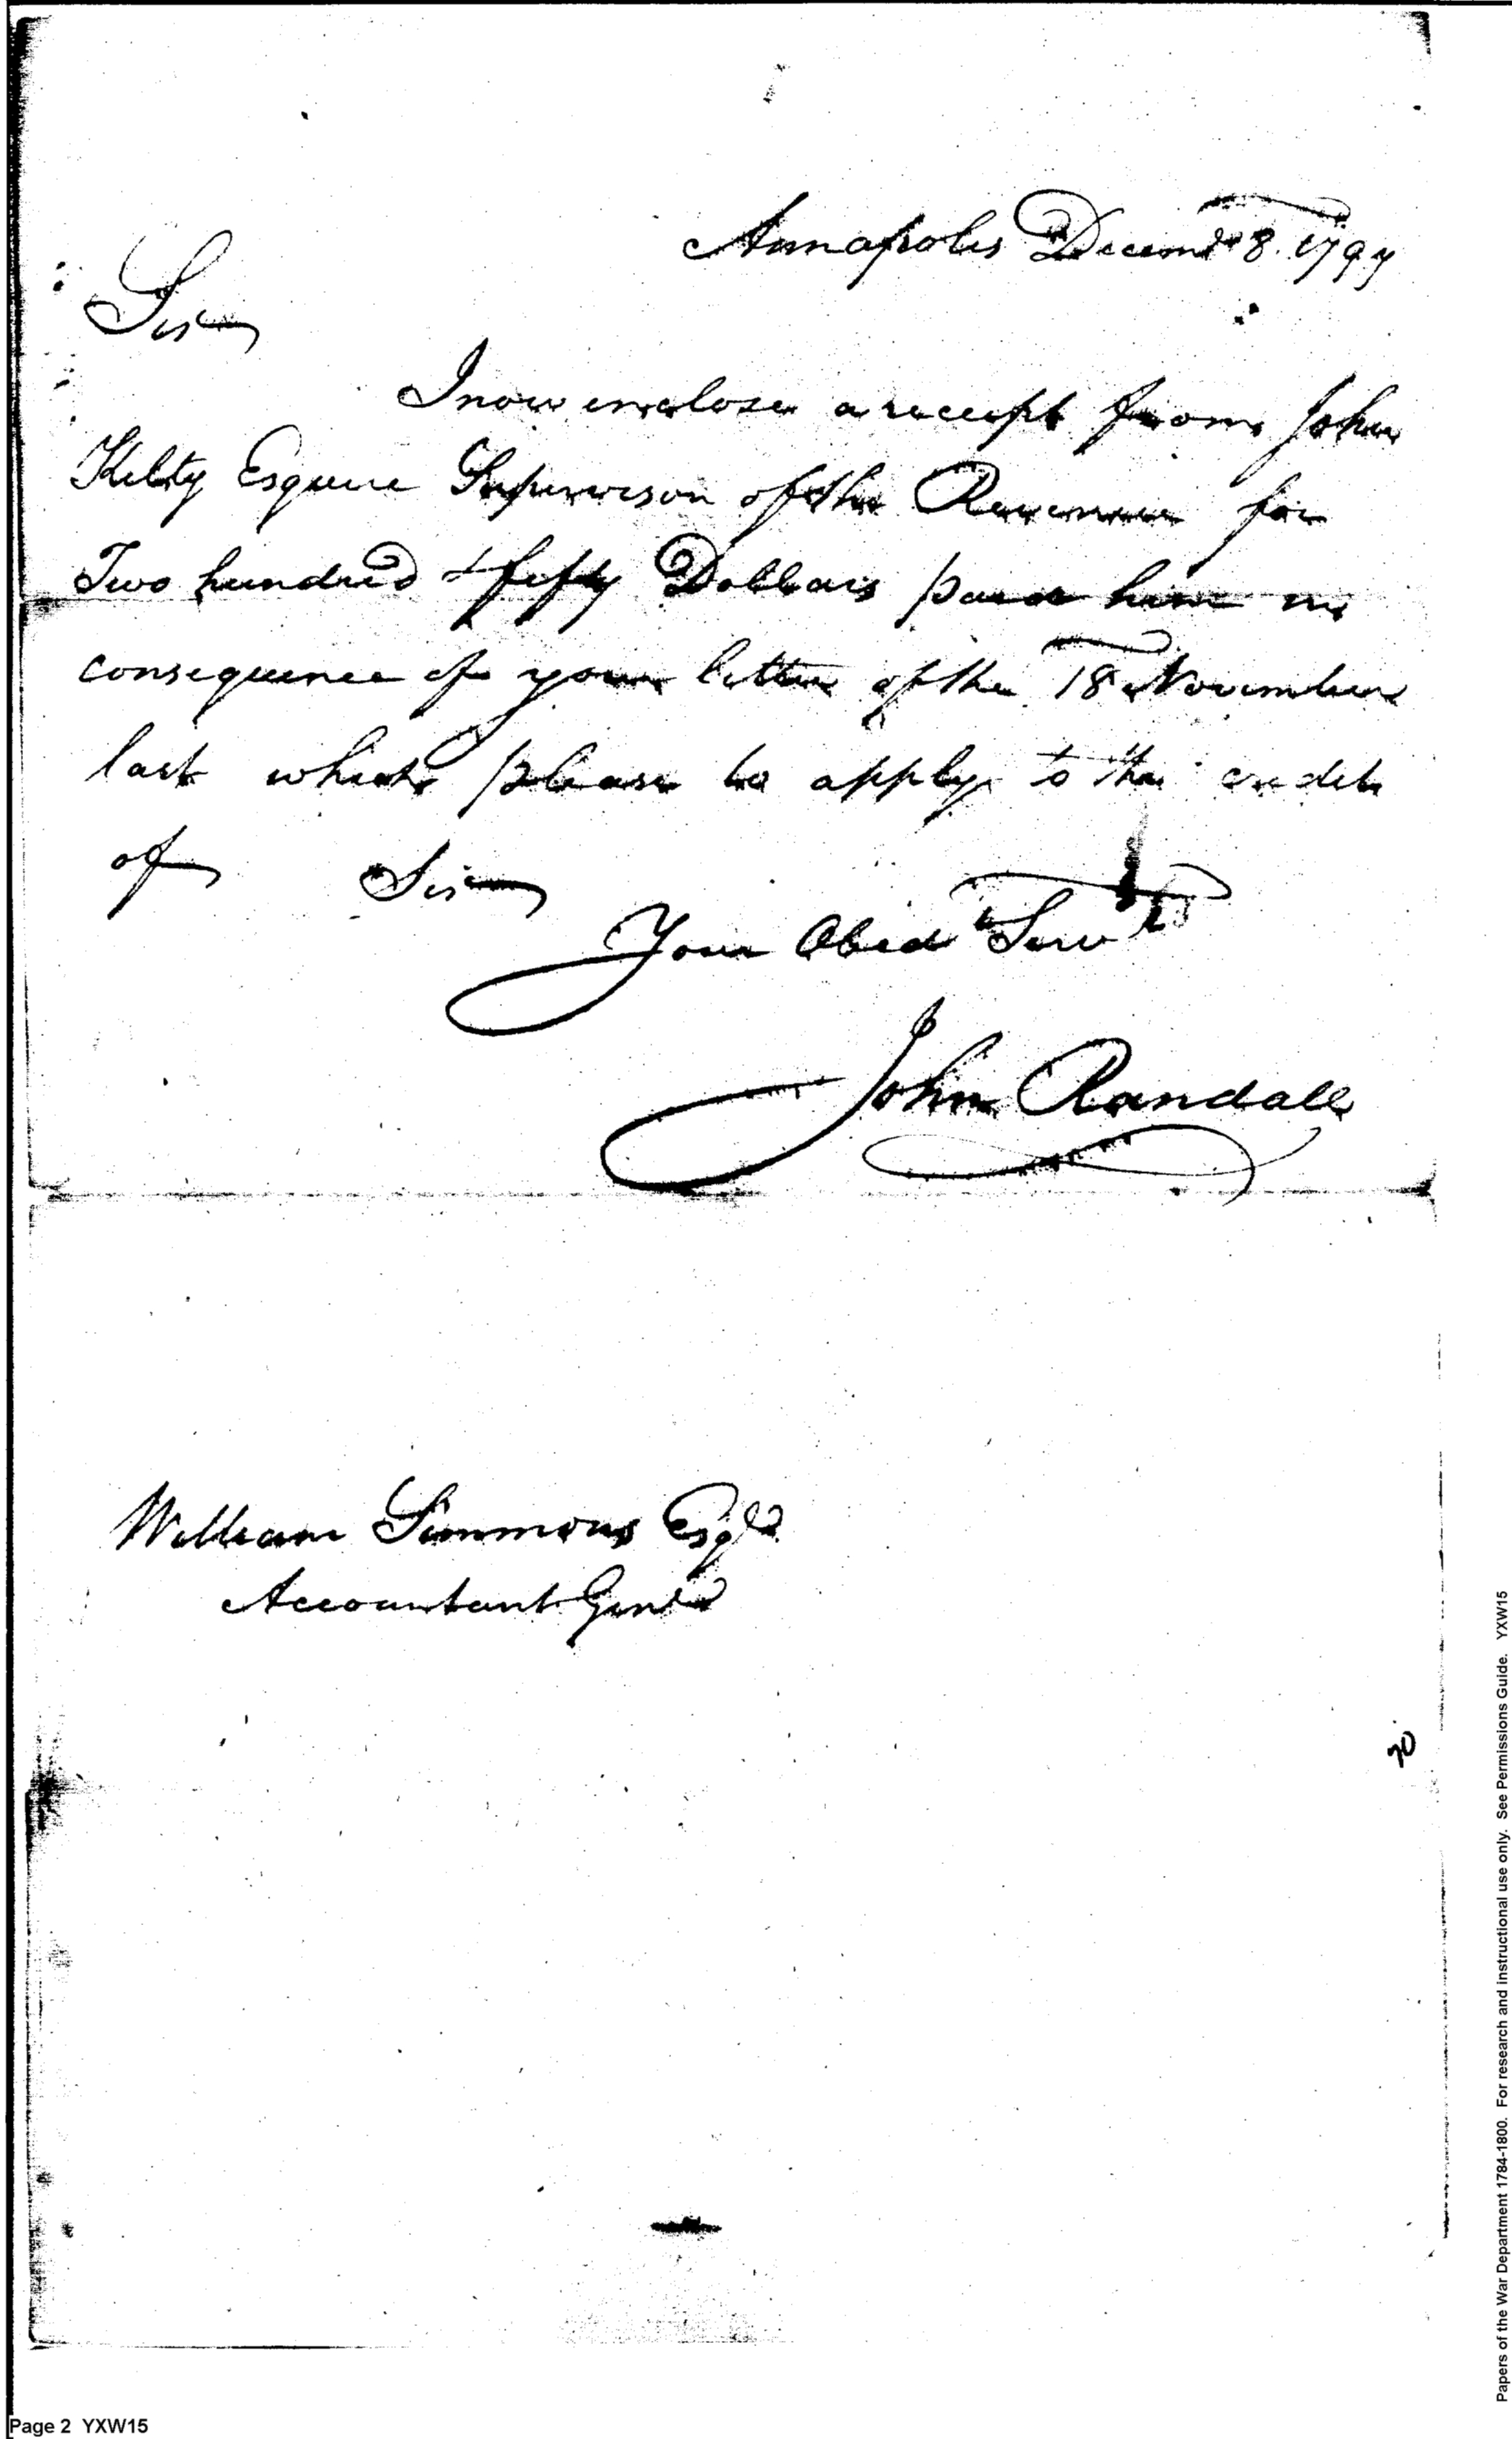 Annapolis Decemr 8. 1797
Sir
I now enclose a receipt from John
Kilty Esquire Supervisor of the Revenue for
Two hundred & fifty Dollars paid him in
consequence of your letter of the 18 November
last which please to apply to the credit
of Sir
Your Obedt Servt
John Randall
William Simmons Esqr
Accountant Genl
70
Page 2 YXW15
Papers of the War Department 1784-1800. For research and instructional use only. See Permissions Guide. YXW15